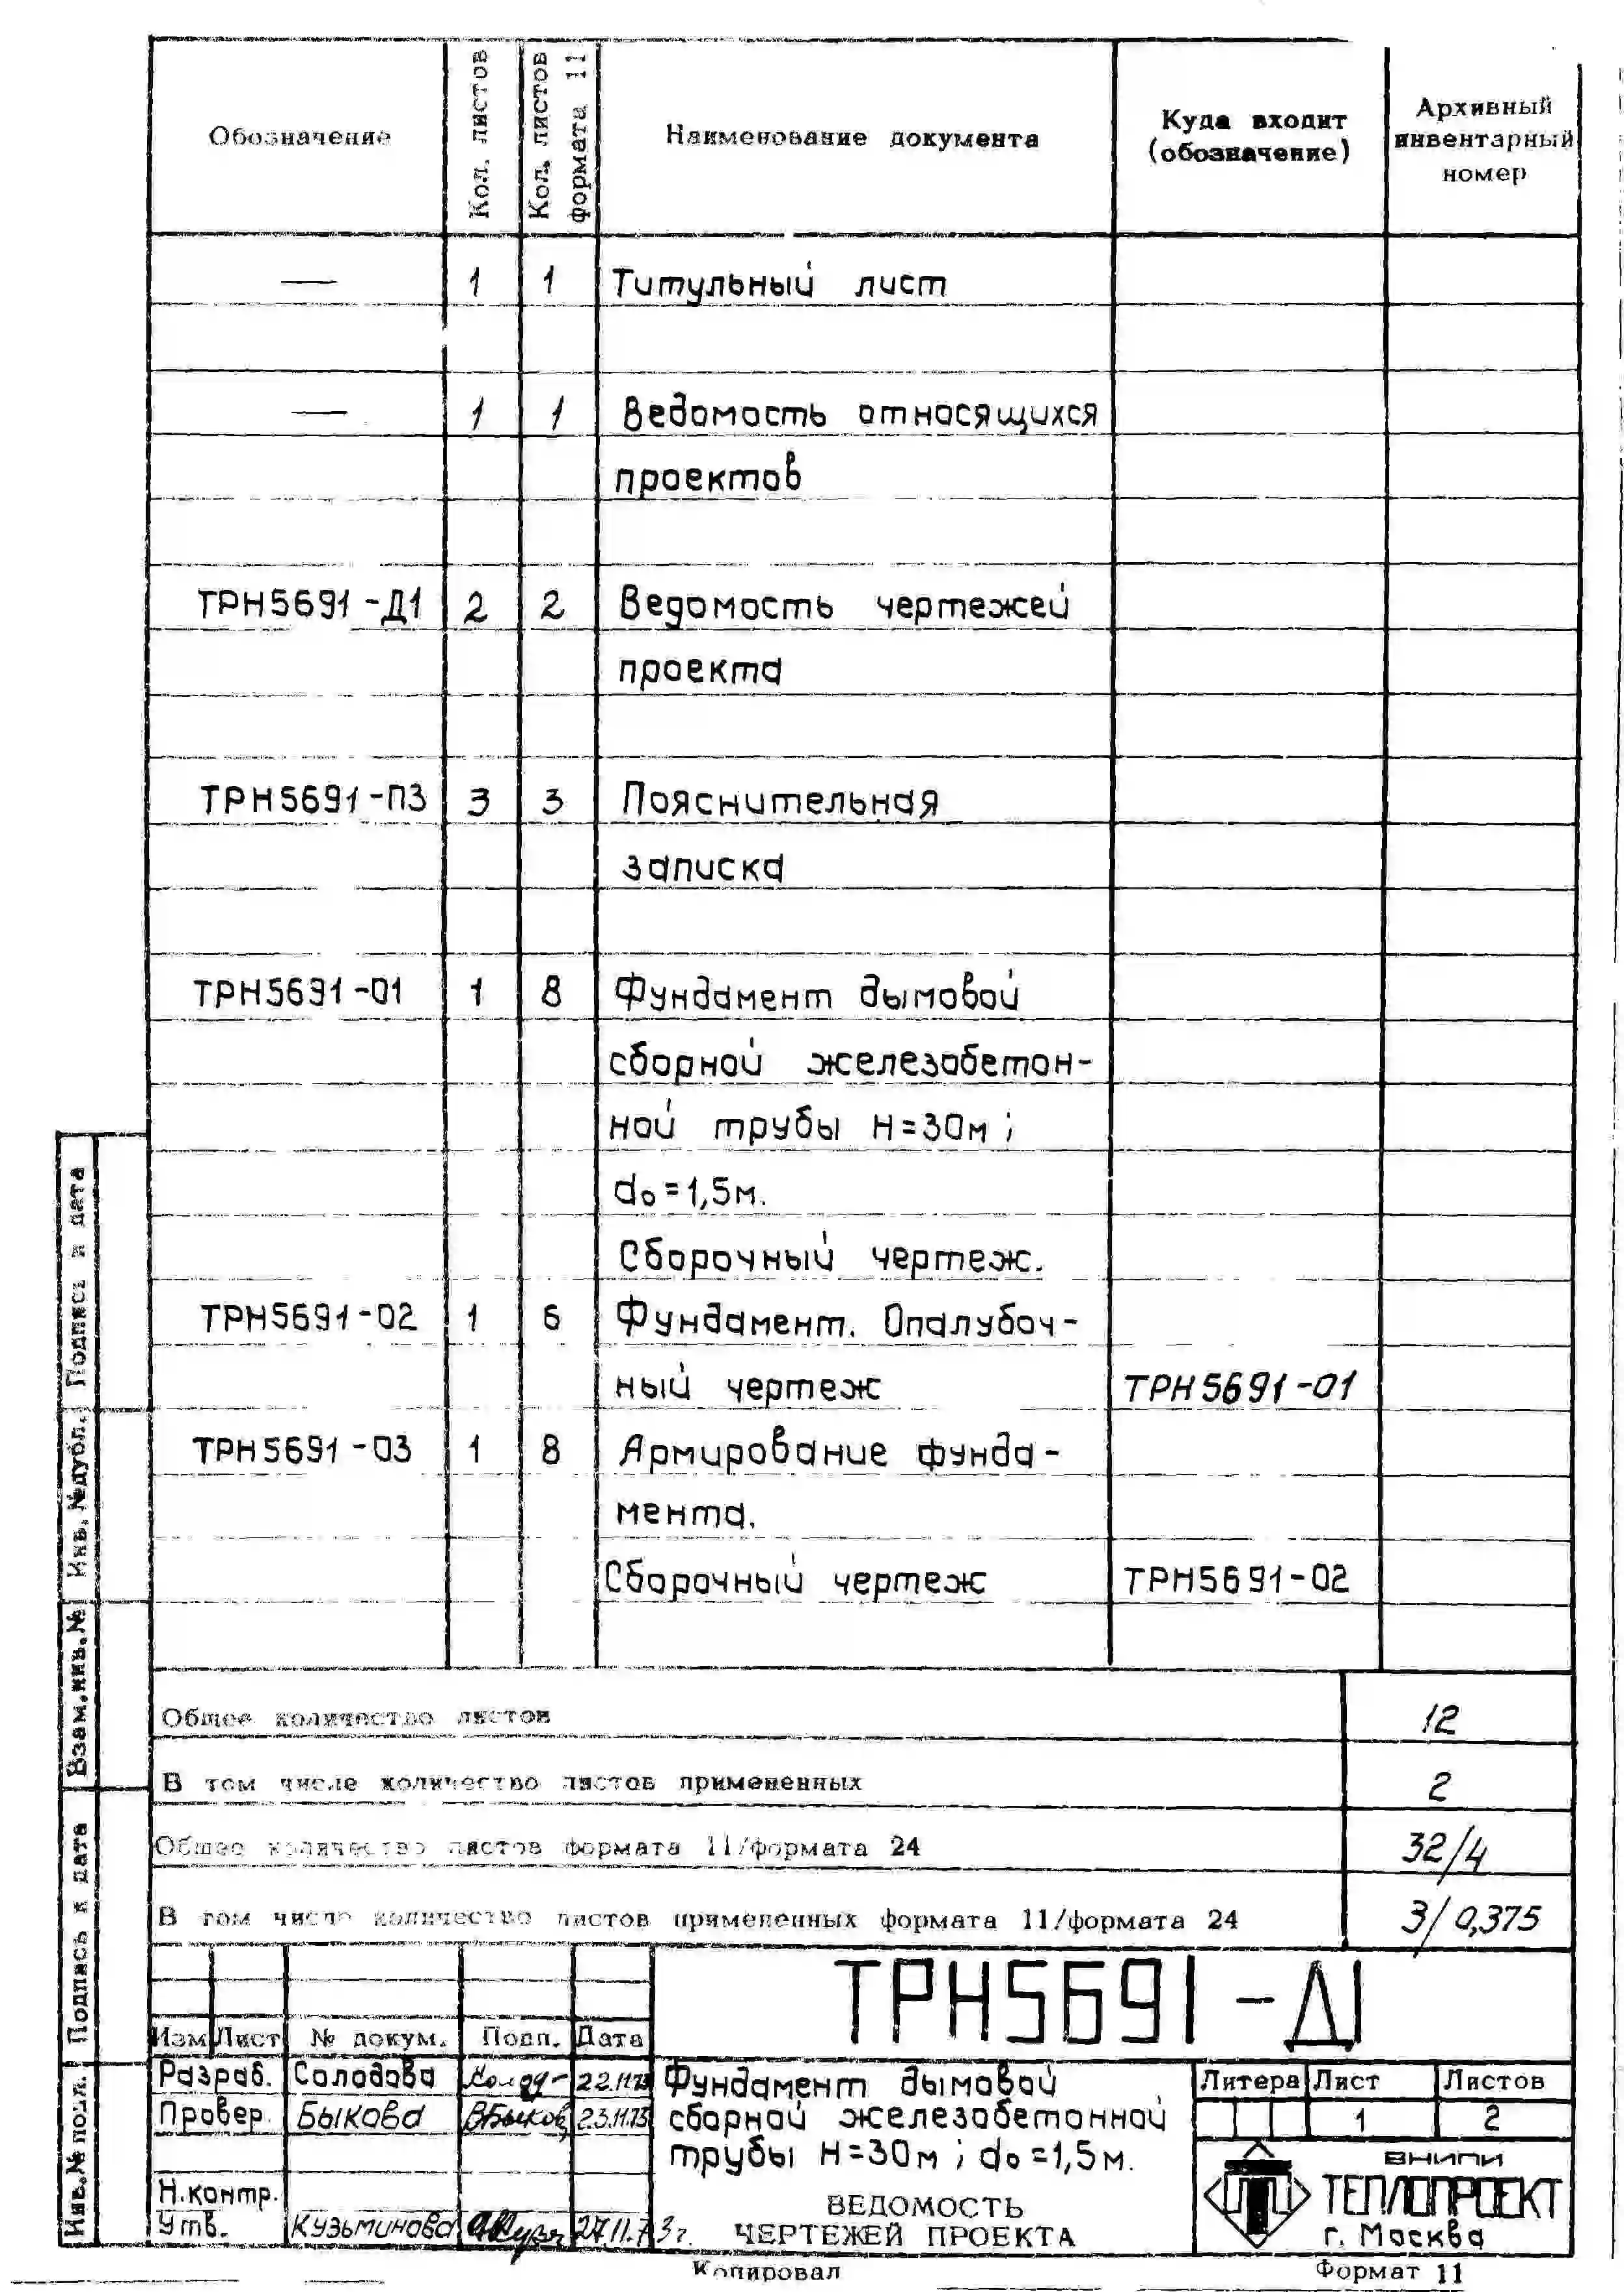 Обозначение
Кол. листов
Кол. листов формата 11
Наименование документа
Куда входит
(обозначение)
Архивный
инвентарный
номер
— 1 1 Титульный лист
— 1 1 Ведомость относящихся
проектов
ТРН5691-Д1 2 2 Ведомость чертежей
проекта
ТРН5691-ПЗ 3 3 Пояснительная
записка
ТРН5691-01 1 8 Фундамент дымовой
сборной железобетон-
ной трубы Н=30м;
do=1,5м.
Сборочный чертеж.
ТРН5691-02 1 6 Фундамент. Опалубоч-
ный чертеж ТРН5691-01
ТРН5691-03 1 8 Армирование фунда-
мента.
Сборочный чертеж ТРН5691-02
Общее количество листов 12
В том числе количество листов примененных 2
Общее количество листов формата 11/формата 24 32/4
В том число количество листов примененных формата 11/формата 24 3/0,375
Инв.№ подл.
Подпись и дата
Взам.инв.№
Инв.№дубл.
Подпись и дата
ТРН5691-Д1
Изм Лист № докум. Подп. Дата
Разраб. Солодова 22.11.73
Провер. Быкова ВБыков 23.11.73
Н.контр.
Утв. Кузьминова 27.11.73г.
Фундамент дымовой
сборной железобетонной
трубы Н=30м; do=1,5м.
ВЕДОМОСТЬ
ЧЕРТЕЖЕЙ ПРОЕКТА
Литера Лист Листов
1 2
ВНИПИ
ТЕПЛОПРОЕКТ
г. Москва
Копировал Формат 11